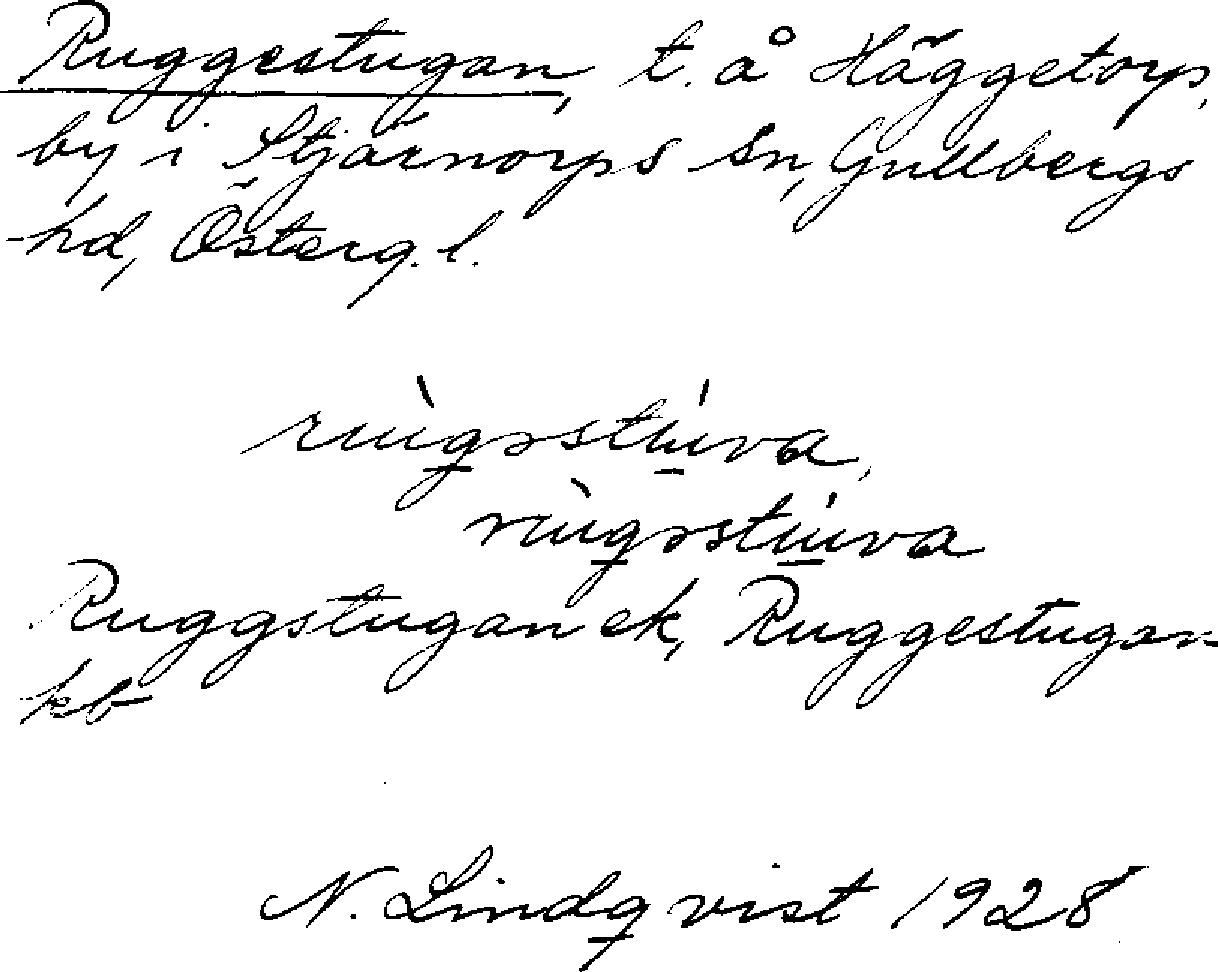 Ruggestugan, t. å Häggetorp,
by i Stjärnorps sn, Gullbergs
hd, Österg. l.
Ruggstugan ek, Ruggestugan
kb
N. Lindqvist 1928